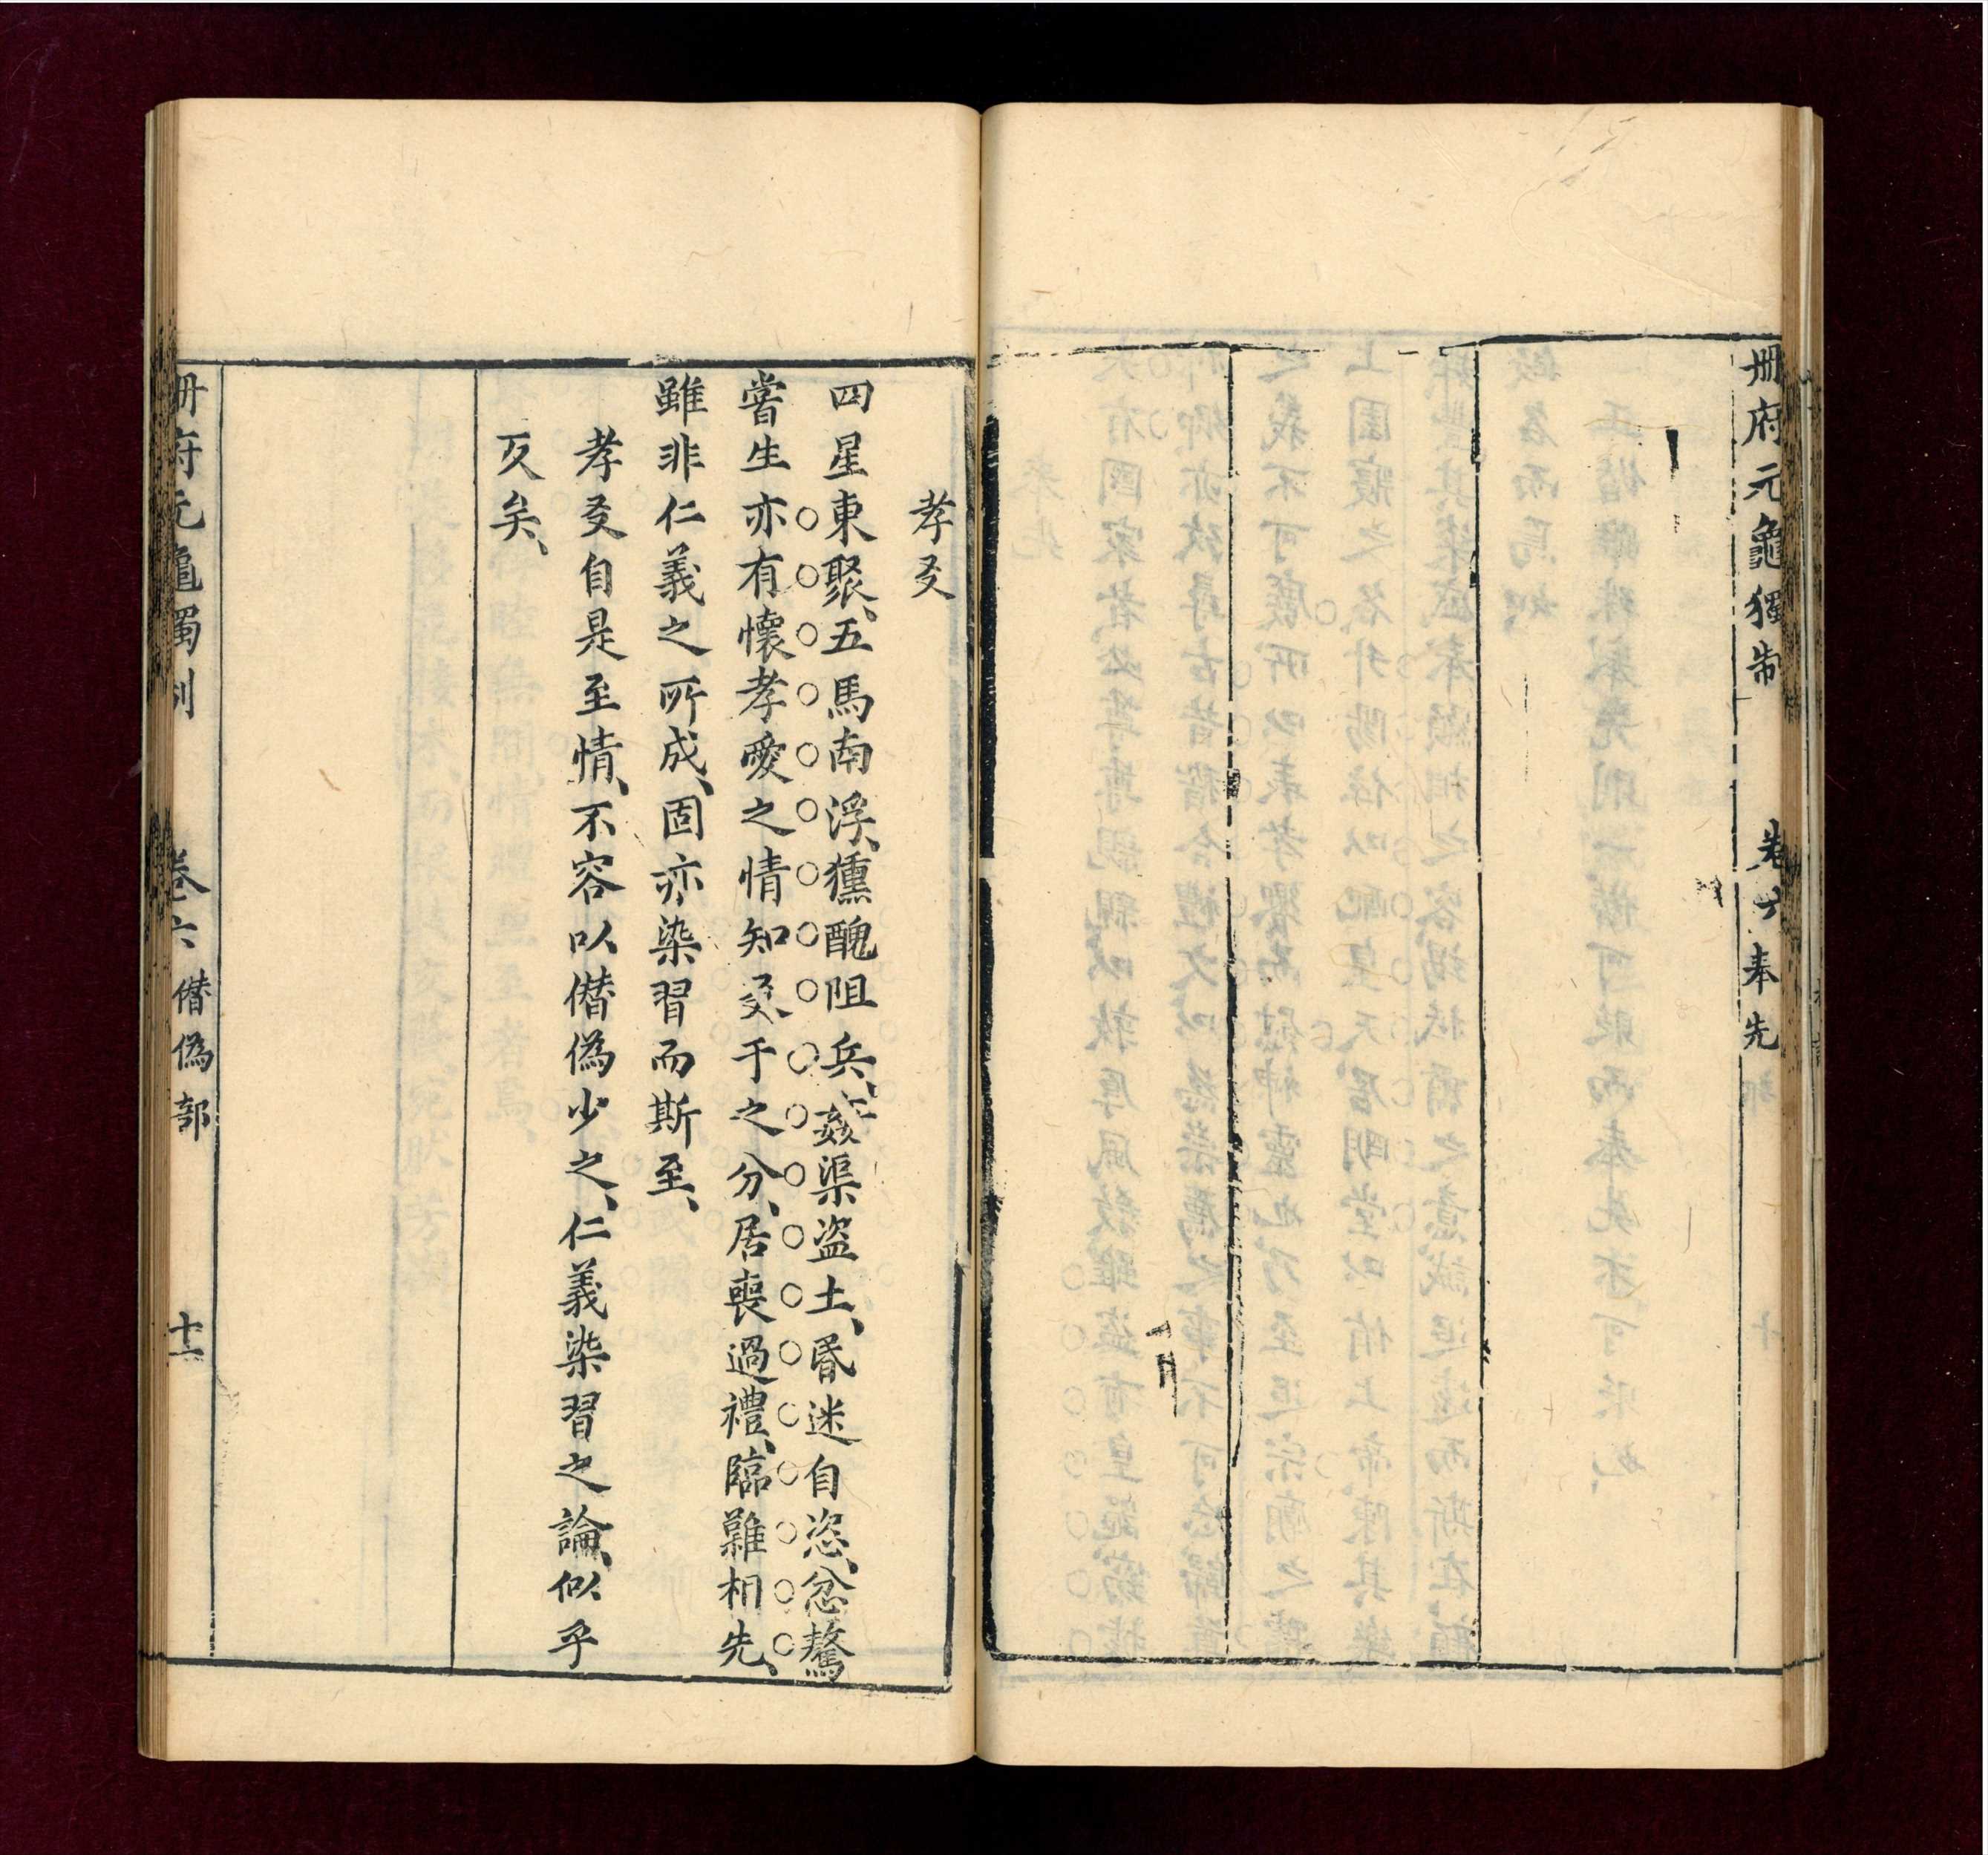 冊府元龜獨制 卷六 奉先
孝叐
四星東聚、五馬南浮、獯醜阻兵、姦渠盜土、昬迷自恣、忿驁
嘗生亦有懷孝愛之情知叐于之分、居喪過禮、臨難相先、
雖非仁義之所成、固亦染習而斯至、
孝叐自是至情、不容以僭偽少之、仁義染習之論、似乎
叐矣、
冊府元龜獨制 卷六 僭偽部 十一